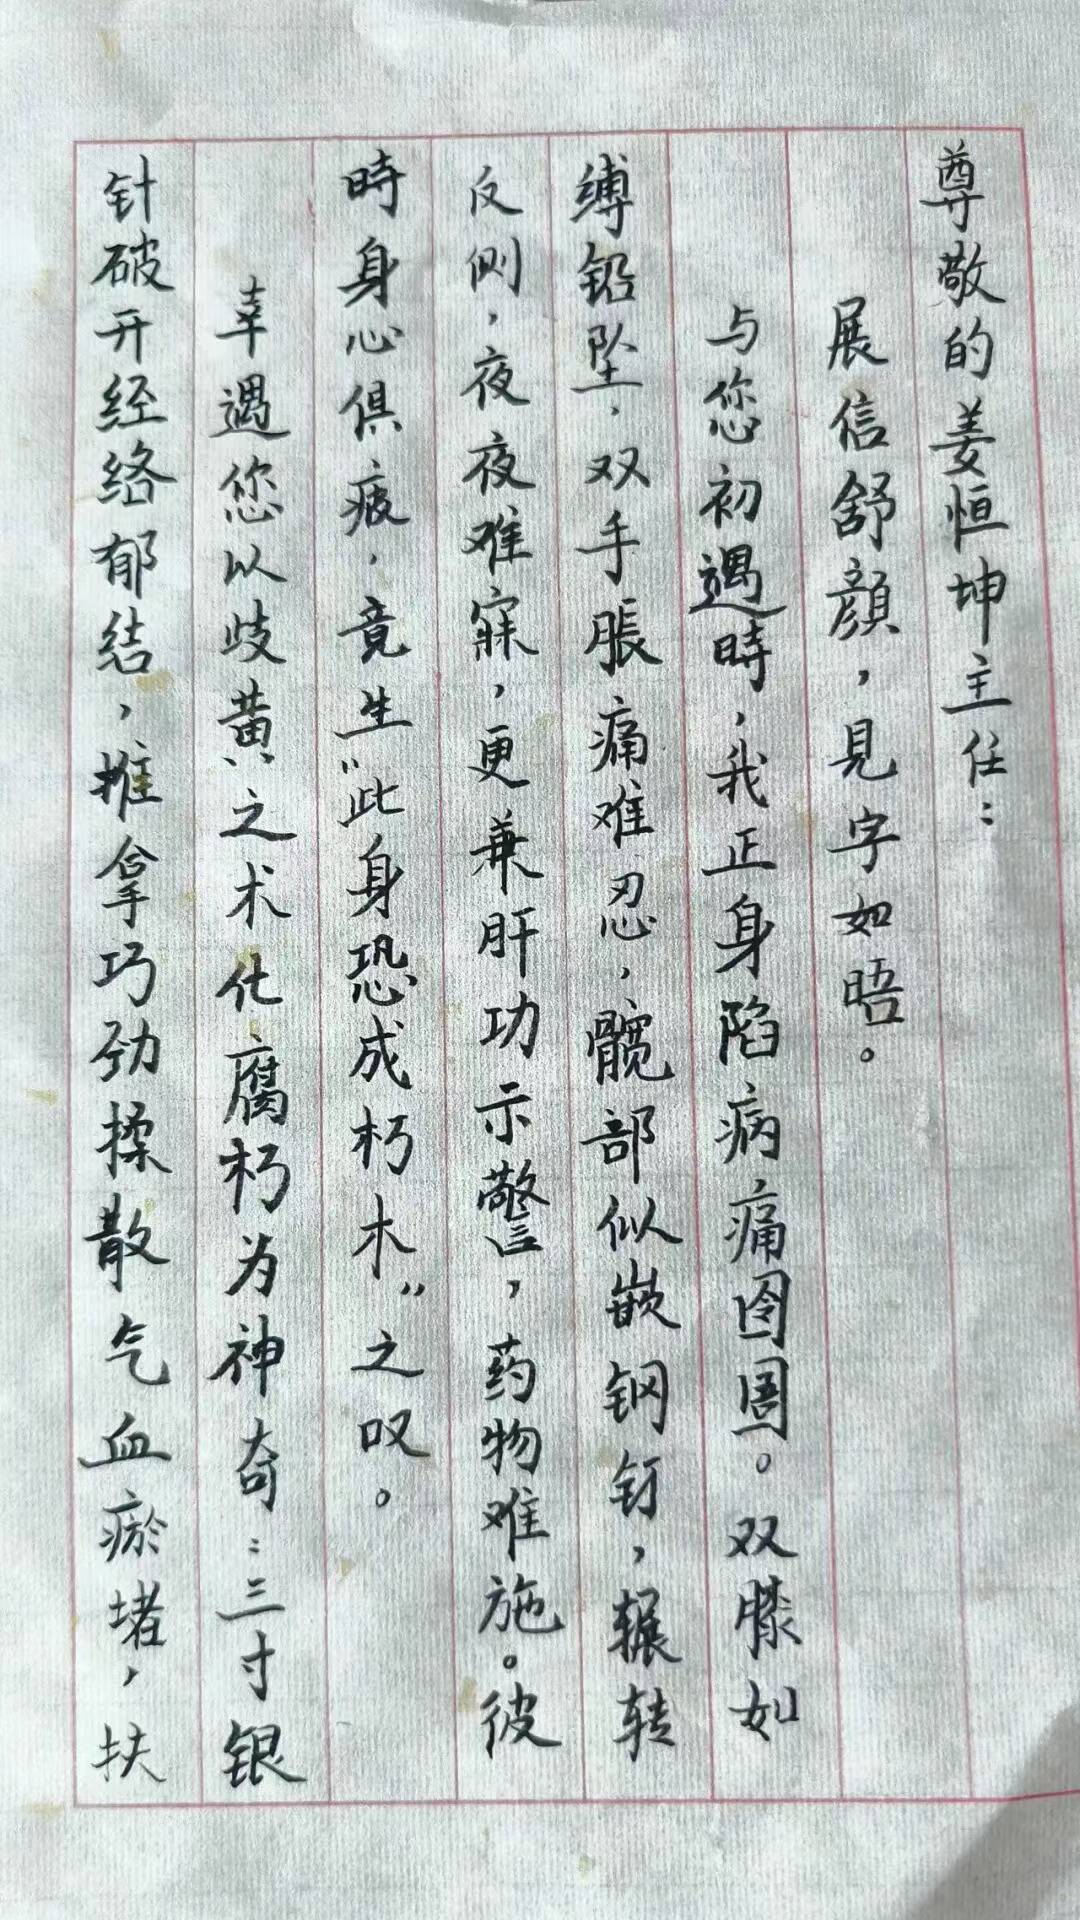 尊敬的姜恒坤主任：
展信舒顔，見字如晤。
与您初遇時，我正身陷病痛囹圄。双膝如
缚铅坠，双手脹痛难忍，髋部似嵌钢钉，辗转
反侧，夜夜难寐，更兼肝功示警，药物难施。彼
時身心俱疲，竟生“此身恐成朽木”之叹。
幸遇您以歧黄之术化腐朽为神奇：三寸银
针破开经络郁结，推拿巧劲揉散气血瘀堵，扶